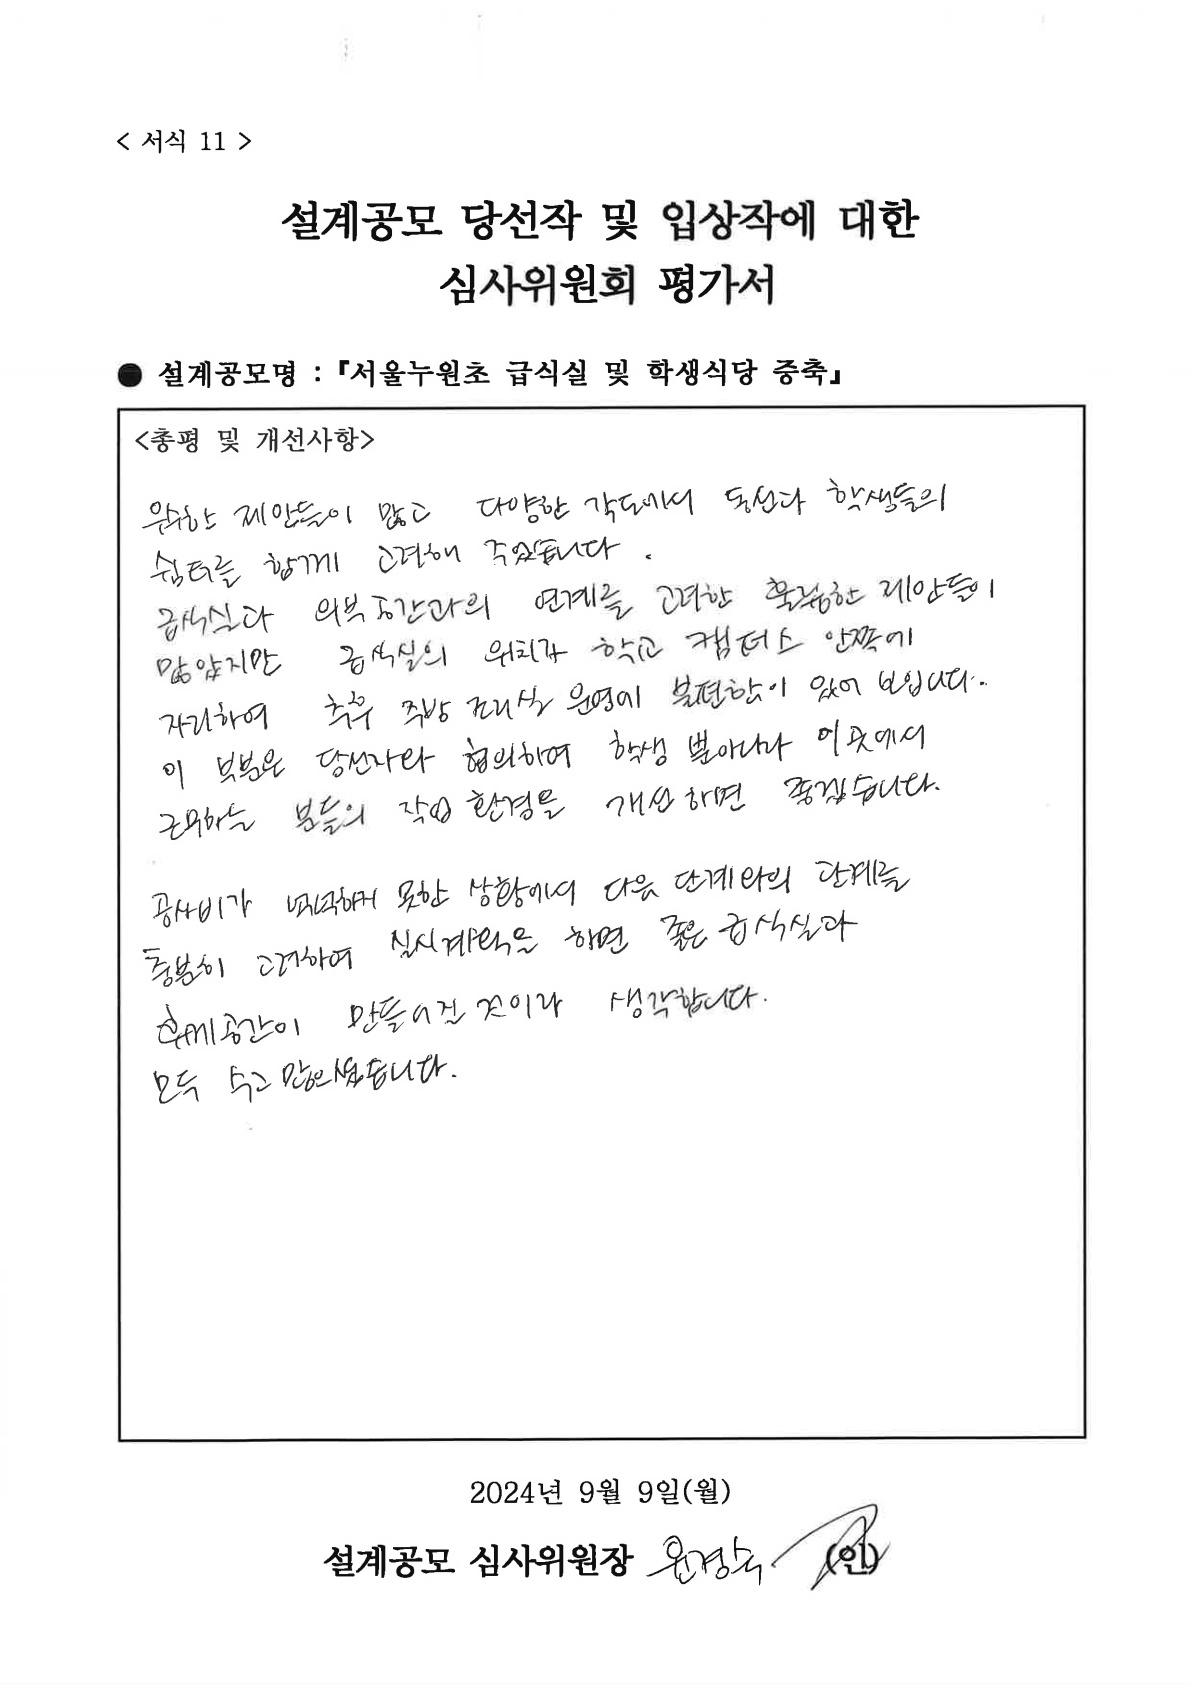 < 서식 11 >
설계공모 당선작 및 입상작에 대한
심사위원회 평가서
● 설계공모명 : 『서울누원초 급식실 및 학생식당 증축』
<총평 및 개선사항>
우수한 제안들이 많고 다양한 각도에서 동선과 학생들의
쉼터를 함께 고려해 주었습니다.
급식실과 외부공간과의 연계를 고려한 훌륭한 제안들이
많았지만 급식실의 위치가 학교 캠퍼스 안쪽에
자리하여 추후 주방 조리실 운영에 불편함이 있어 보입니다.
이 부분은 당선자와 협의하여 학생 뿐아니라 이곳에서
근무하는 분들의 작업환경을 개선하면 좋겠습니다.
공사비가 넉넉하지 못한 상황에서 다음 단계와의 관계를
충분히 고려하여 실시계획을 하면 좋은 급식실과
휴게공간이 만들어진 것이라 생각합니다.
모두 수고 많으셨습니다.
2024년 9월 9일(월)
설계공모 심사위원장 윤경숙 (인)